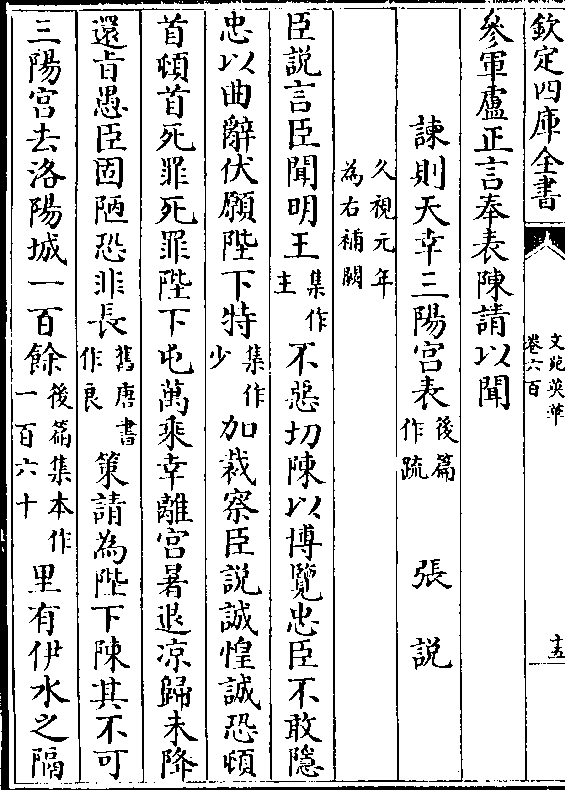 欽定四庫全書
文苑英華
卷六百
十五
參軍盧正言奉表陳請以聞
諫則天幸三陽宮表後篇作疏 張説
久視元年為右補闕
臣説言臣聞明王集作主不惡切陳以博覽忠臣不敢隱
忠以曲辭伏願陛下特集作少加裁察臣説誠惶誠恐頓
首頓首死罪死罪陛下屯萬乘幸離宮暑退凉歸未降
還㫖愚臣固陋恐非長舊唐書作良策請為陛下陳其不可
三陽宮去洛陽城一百餘後篇集本作一百六十里有伊水之隔